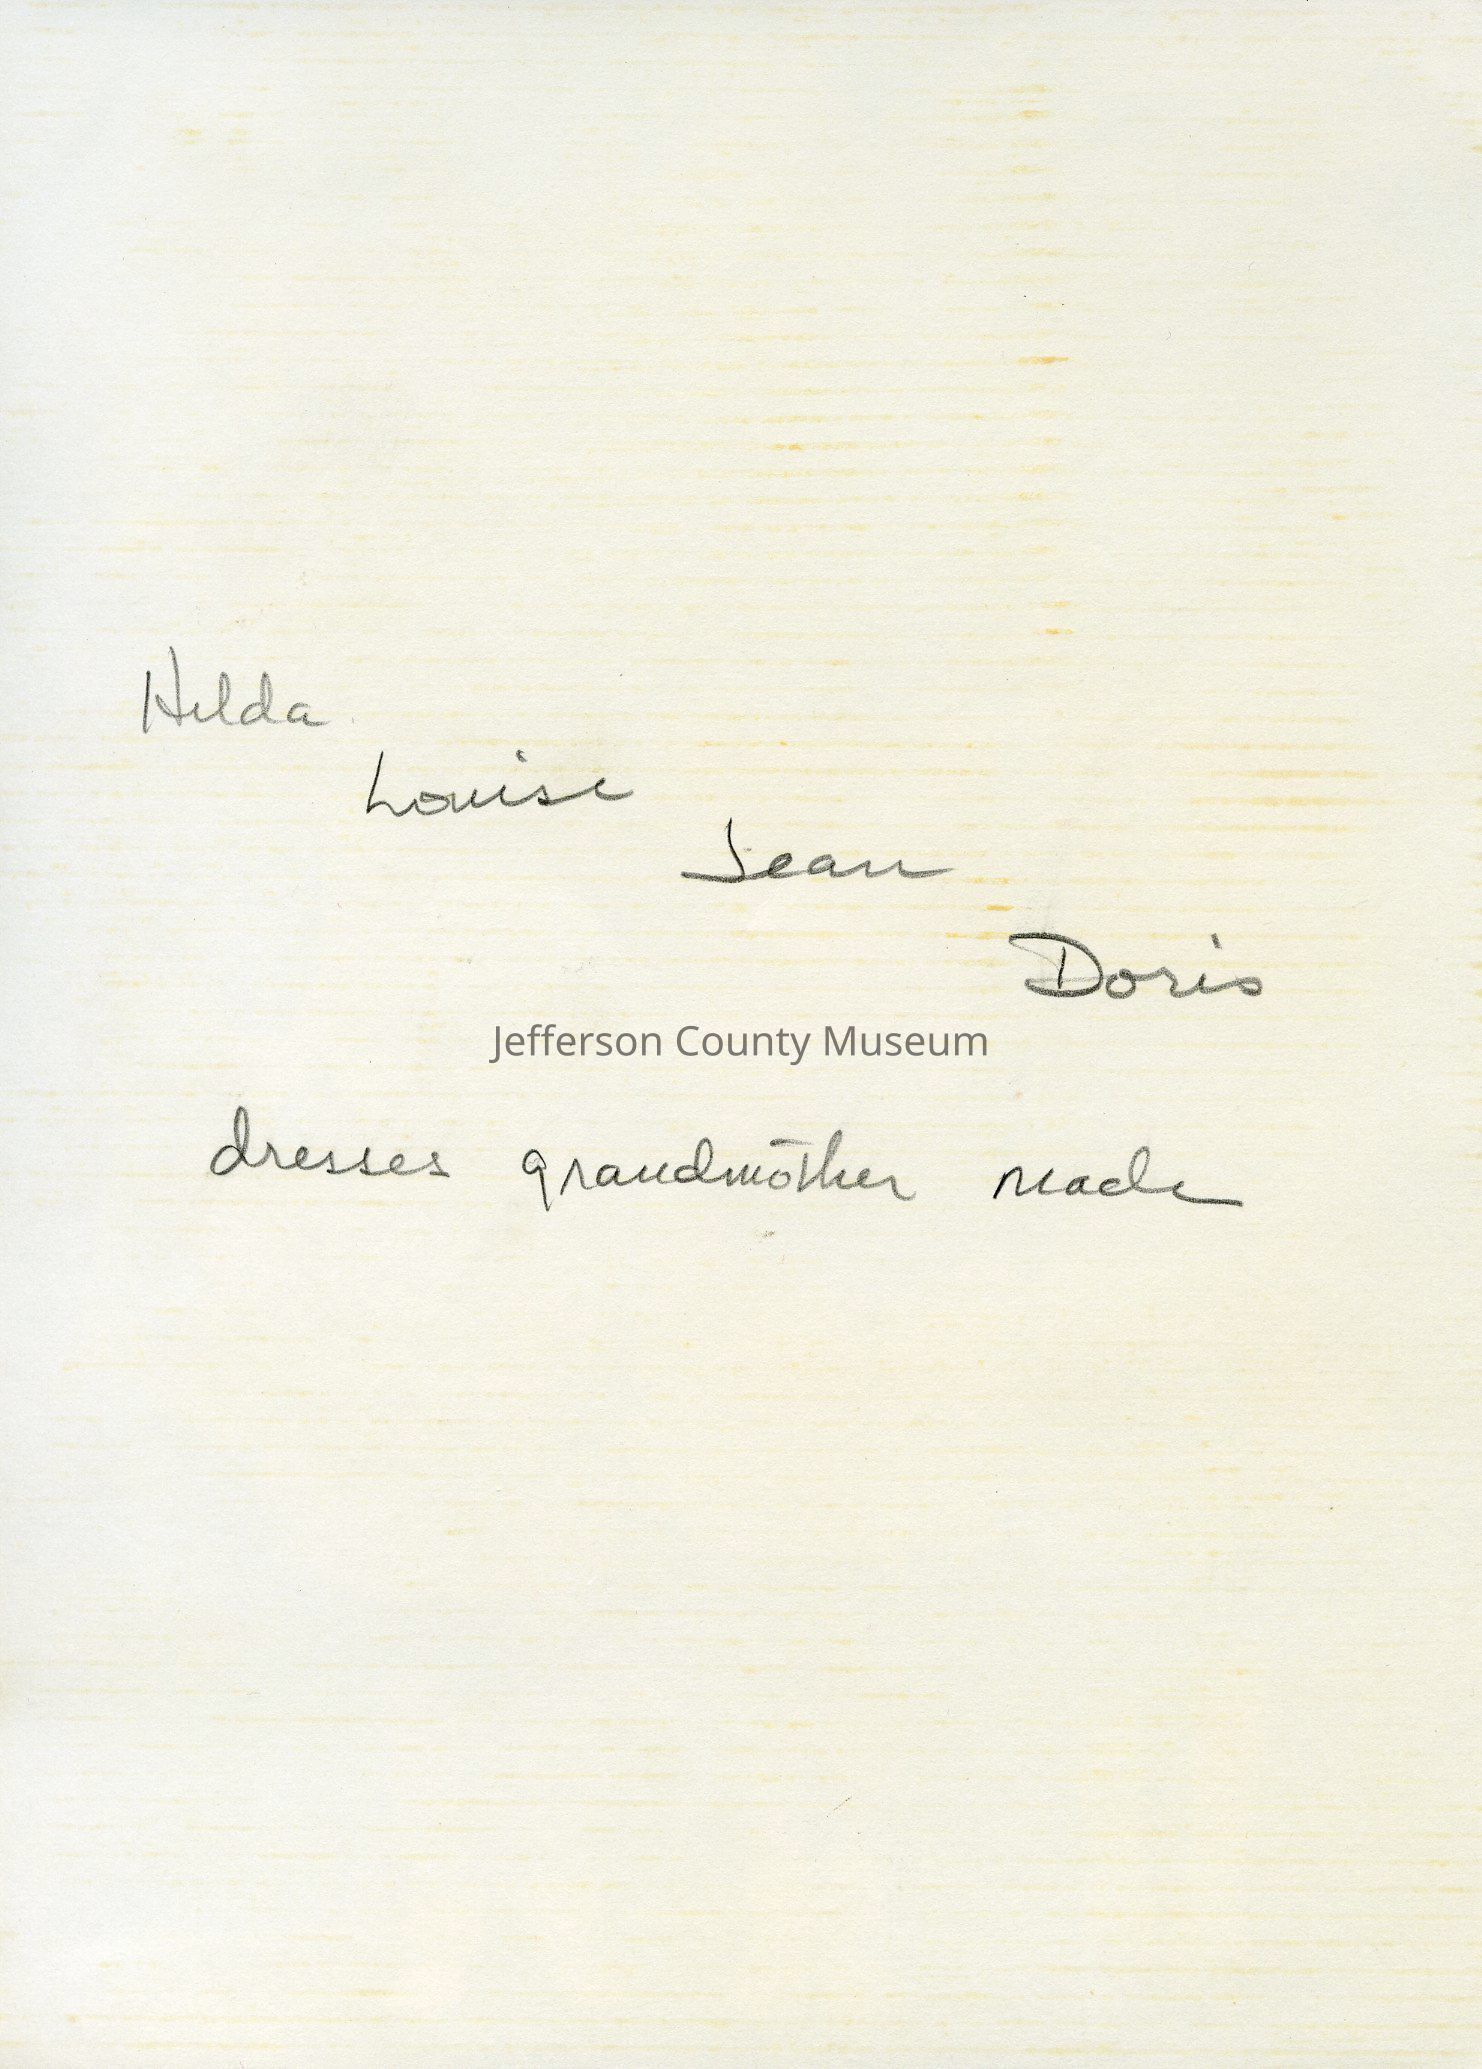 Hilda
Louise
Jean
Doris
Jefferson County Museum
dresses grandmother made